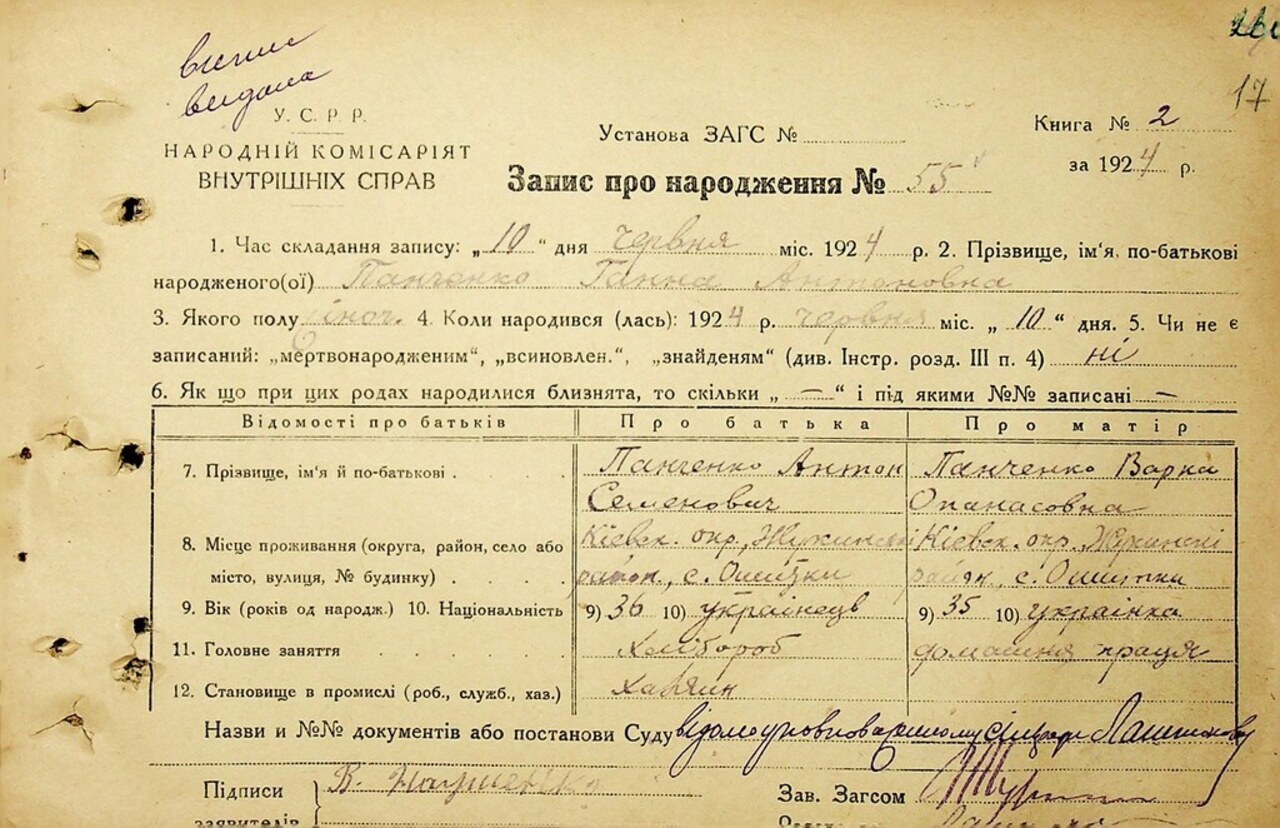 випис
видана
17
У. С. Р. Р.
НАРОДНІЙ КОМІСАРІЯТ
ВНУТРІШНІХ СПРАВ
Установа ЗАГС №
Книга № 2
за 1924 р.
Запис про народження № 55
1. Час складання запису: „10“ дня червня міс. 1924 р. 2. Прізвище, ім'я, по-батькові
народженого(ої) Панченко Ганна Антоновна
3. Якого полу жіноч. 4. Коли народився (лась): 1924 р. червня міс. „10“ дня. 5. Чи не є
записаний: „мертвонародженим“, „всиновлен.“, „знайденям“ (див. Інстр. розд. III п. 4) ні
6. Як що при цих родах народилися близнята, то скільки „—“ і під якими №№ записані —
Відомості про батьків Про батька Про матір
7. Прізвище, ім'я й по-батькові . . . Панченко Антон Панченко Варка
Семенович Опанасовна
8. Місце проживання (округа, район, село або Київск. окр., Жукинскі Київск. окр. Жукинскі
місто, вулиця, № будинку) . . . . район, с. Ошитки район, с. Ошитки
9. Вік (років од народж.) 10. Національність 9) 36 10) українець 9) 35 10) українка
11. Головне заняття . . . . . . Хлібороб домашня праця
12. Становище в промислі (роб., служб., хаз.) Хазяїн
Назви и №№ документів або постанови Суду
Підписи
заявителів
Зав. Загсом